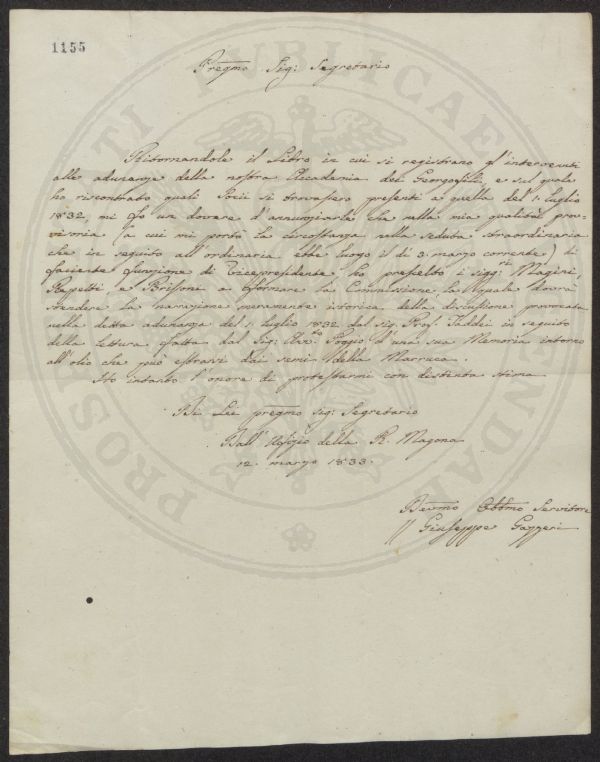 1155
Pregmo Sig: Segretario
Ritornandole il Libro in cui si registrano gl'intervenuti
alle adunanze della nostra Accademia dei Georgofili, e sul quale
ho riscontrato quali Socii si trovassero presenti a quella del 1. luglio
1832, mi fo un dovere d'annunziarle che nella mia qualità prov-
visoria (a cui mi portò la circostanza nella seduta straordinaria
che in seguito all'ordinaria ebbe luogo il dì 3. marzo corrente) di
facente funzione di Vicepresidente ho prescelto i sigg:ri Magini,
Repetti e Brissoni a formare la Commissione, la quale dovrà
stendere la narrazione meramente istorica della discussione provocata
nella detta adunanza del 1. luglio 1832 dal sig. Prof. Taddei in seguito
della lettura fatta dal Sig: Avv:to Poggio d'una sua Memoria intorno
all'olio che può estrarsi dai semi della Marruca.
Ho intanto l'onore di protestarmi con distinta stima
Di Lei pregmo sig: Segretario
Dall'Uffizio della R. Magona
12. marzo 1833.
Devmo Obbmo Servitore
Giuseppe Gazzeri
PROSPERITATI PUBLICAE AUGENDAE